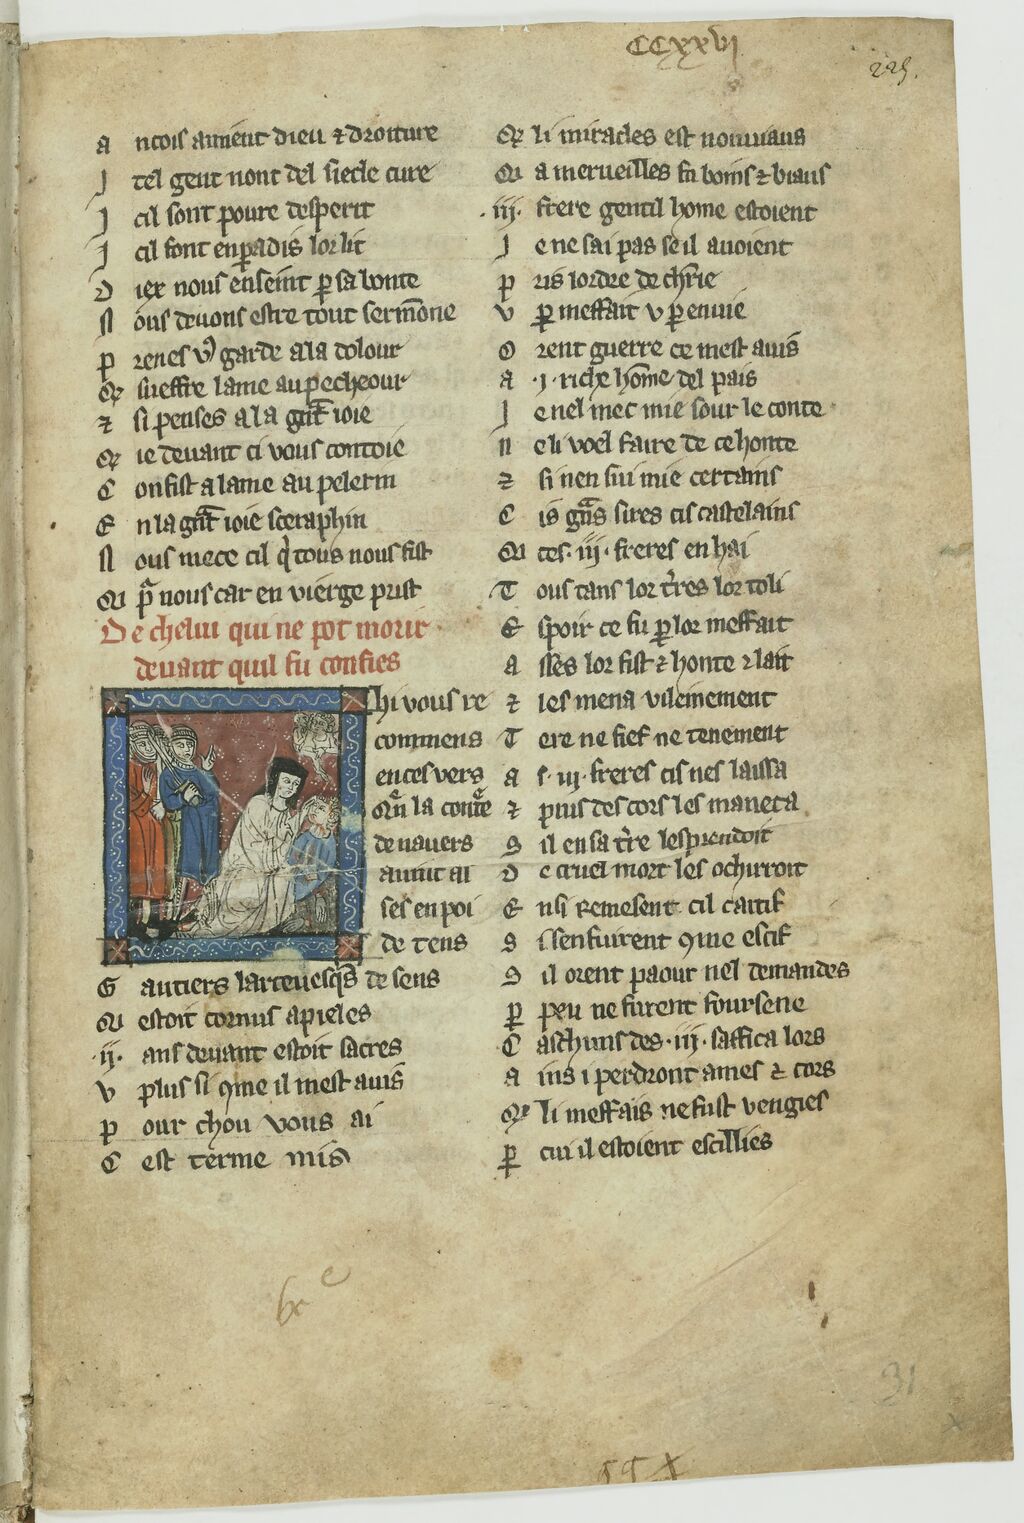 CCXXVI
225.
A ncois aiment dieu ⁊ droiture
I tel gent nont del siecle cure
I cil sont poure desperit
I cil font en paradis lor lit
D iex nous enseint p̄ sa bonte
N ous deuons estre tout sermone
P renes vous garde a la dolour
Q̄ sueffre lame au pecheour
⁊ si penses a la gn̄t ioie
Q̄ ie deuant ci vous contoie
C on fist a lame au pelerin
E n la gn̄t ioie sceraphin
N ous mece cil q̄ tous nous fist
Qi p̄ nous car en vierge prist
De chelui qui ne pot morir
deuant quil fu confies
Chi vous re
commens
ences vers
Q̄ la conte
de nauers
auint ai
ses en poi
de tens
G autiers larceuesq̄s de sens
Qi estoit cornus apieles
.ii. ans deuant estoit sacres
V plus si 9me il mest auis
P our chou vous ai
C est terme mis
Q̄ li miracles est nouuiaus
Qi a merueilles fu boins ⁊ biaus
.iii. frere gentil home estoient
I e ne sai pas se il auoient
P ris lordre de chl̄rie
V p̄ meffait v p̄ enuie
O rent guerre ce mest auis
A .i. riche home del pais
I e nel mec mie sour le conte
N e li voel faire de ce honte
⁊ si nen sui mie certains
C is grans sires cis castelains
Qi ces .iii. freres en hai
T ous tans lor t̄res lor toli
E spoir ce fu p̄ lor meffait
A sses lor fist ⁊ honte ⁊ lait
⁊ les mena vileinement
T ere ne fief ne tenement
A s .iii. freres cis nes laissa
⁊ puis des cors les maneca
S il en sa t̄re les prendoit
D e cruel mort les ochirroit
E nsi remesent cil caitif
S i senfuirent 9me escif
S il orent paour nel demandes
P̄ peu ne furent foursene
C aschuns des .iii. saffica lors
A ins i perdront ames ⁊ cors
Q̄ li meffais ne fust vengies
P̄ cui il estoient escillies
31